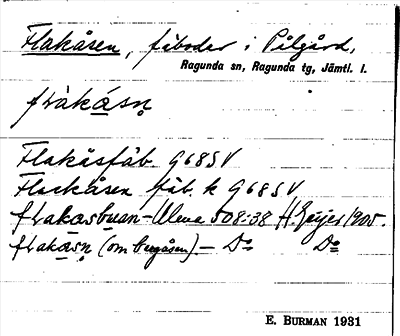 Flakåsen, fäbodar i Pålgård,
Ragunda sn, Ragunda tg, Jämtl. l.
flàkå̀sn̥
Flakåsfäb. 968 SV
Flackåsen fäb. k 968 SV
508:38 H. Geijer 1905.
(om bergåsen) – Do Do
E. BURMAN 1931